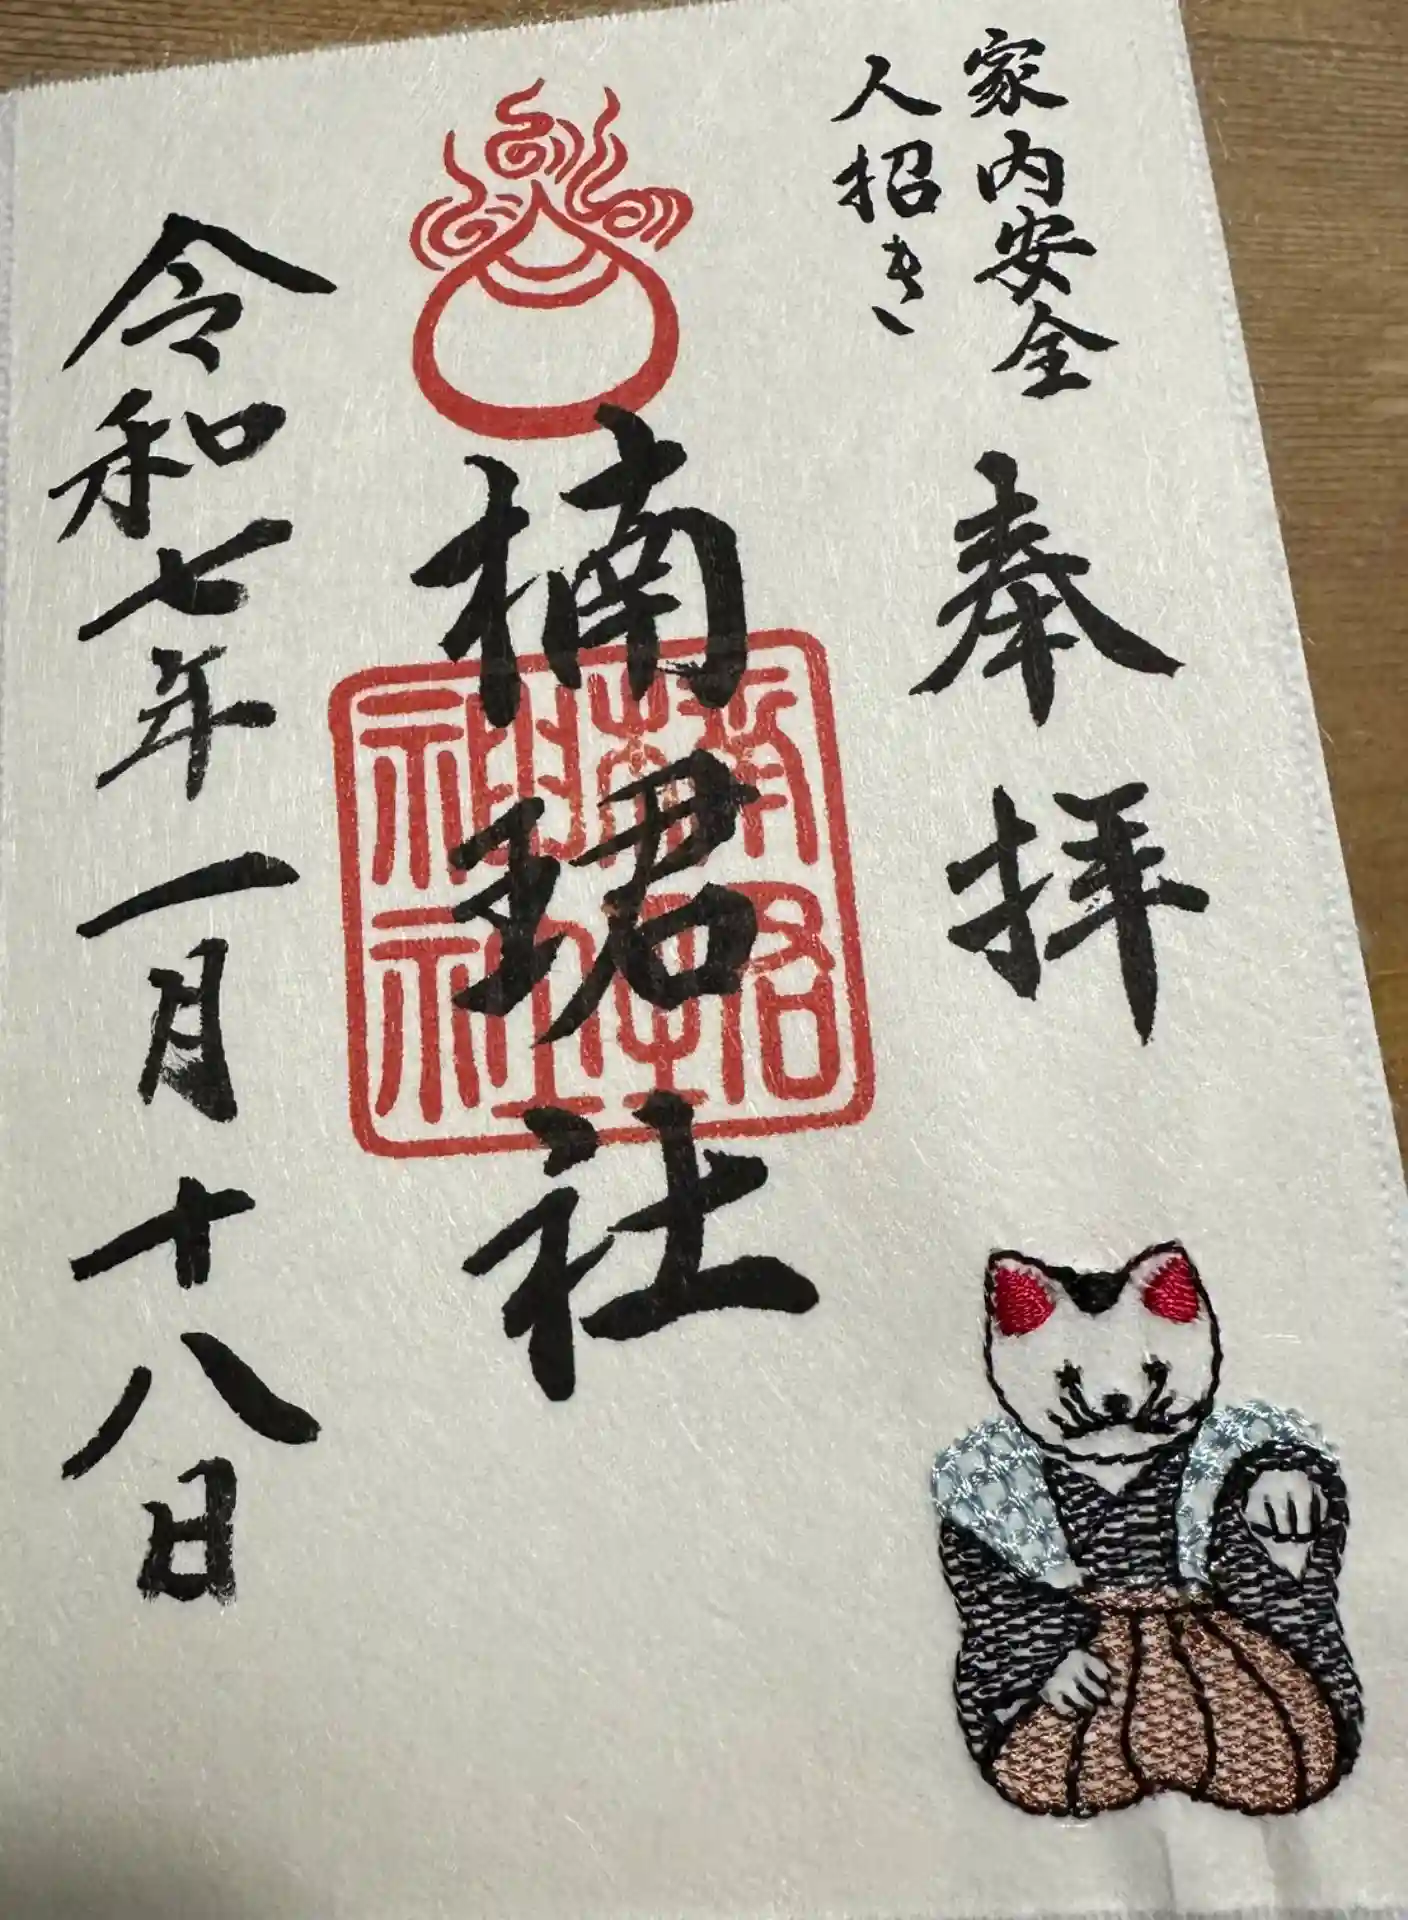 家内安全
人招き
奉拝
楠珺社
令和七年一月十八日